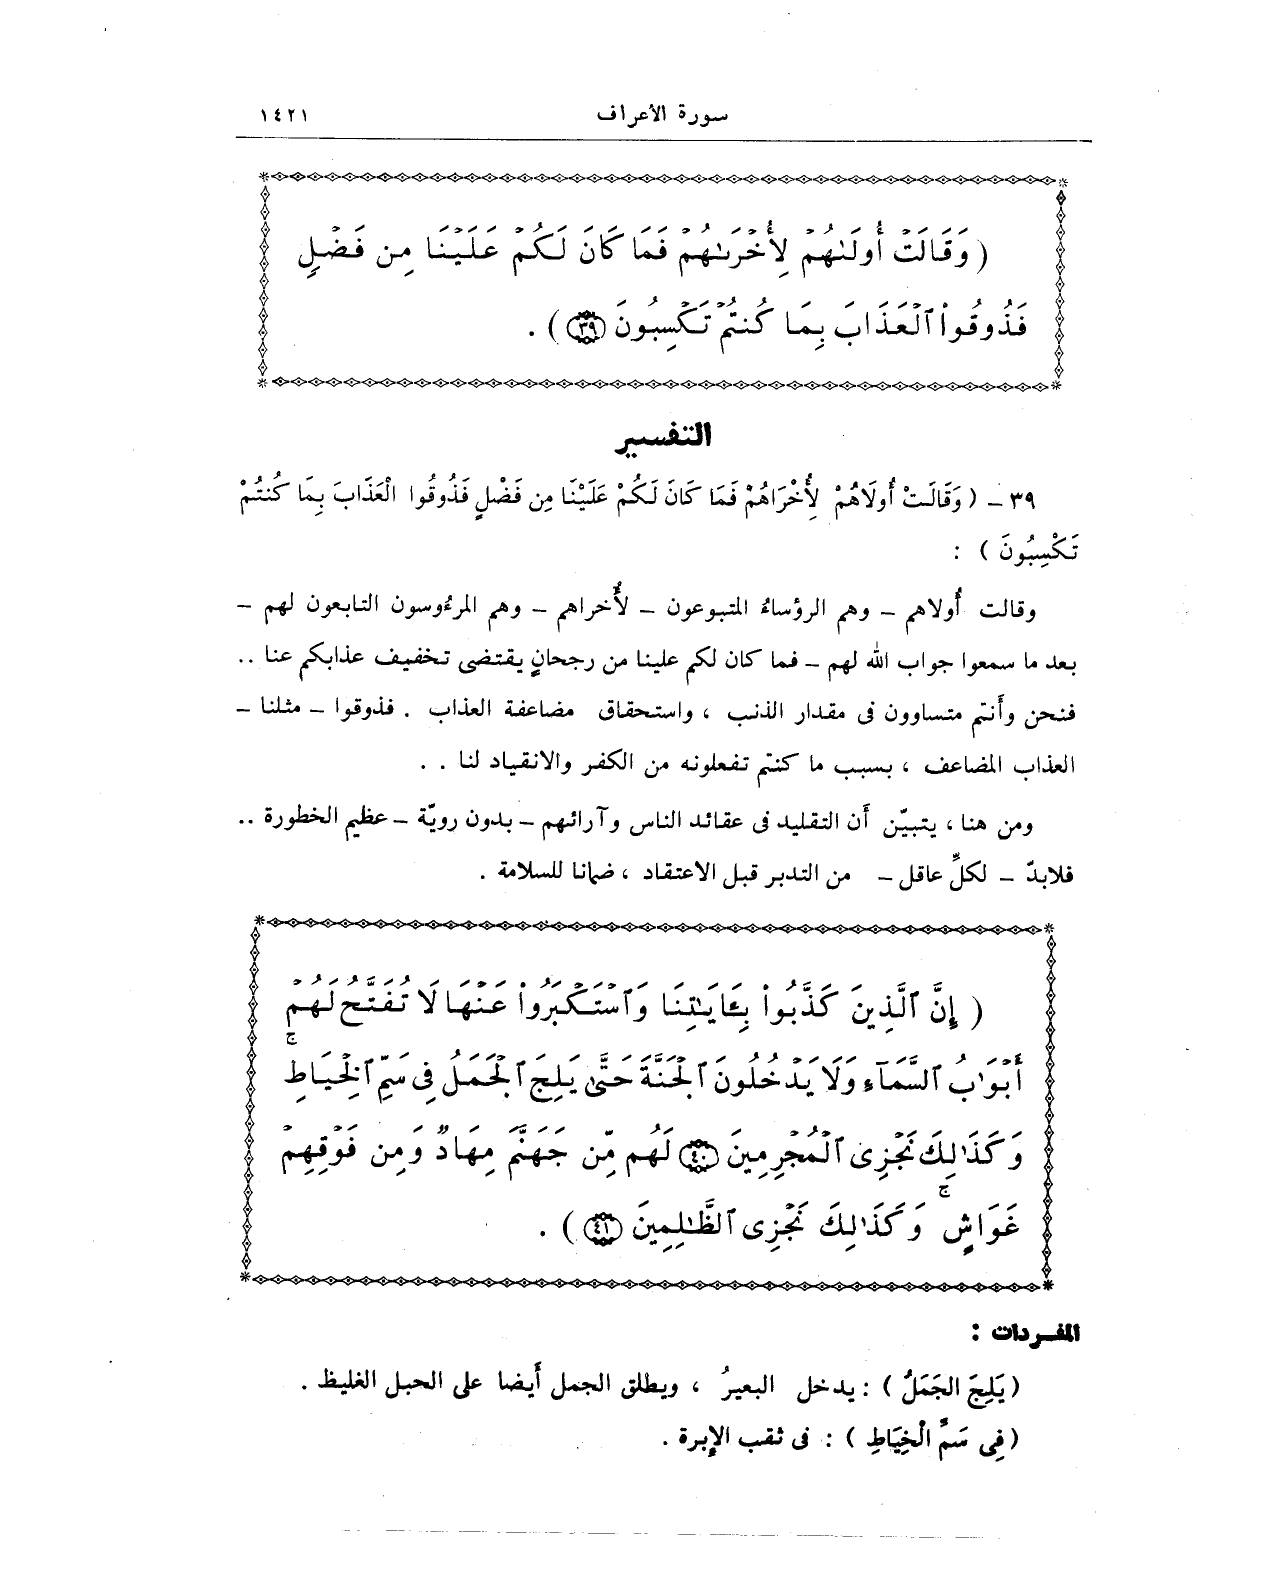 سورة الأعراف ١٤٢١
( وَقَالَتْ أُولَىٰهُمْ لِأُخْرَىٰهُمْ فَمَا كَانَ لَكُمْ عَلَيْنَا مِن فَضْلٍ
فَذُوقُوا۟ ٱلْعَذَابَ بِمَا كُنتُمْ تَكْسِبُونَ ٣٩ ) .
التفسير
٣٩ – ( وَقَالَتْ أُولَاهُمْ لِأُخْرَاهُمْ فَمَا كَانَ لَكُمْ عَلَيْنَا مِن فَضْلٍ فَذُوقُوا الْعَذَابَ بِمَا كُنتُمْ
تَكْسِبُونَ ) :
وقالت أُولاهم – وهم الرؤساءُ المتبوعون – لأُخراهم – وهم المرءوسون التابعون لهم –
بعد ما سمعوا جواب الله لهم – فما كان لكم علينا من رجحانٍ يقتضى تخفيف عذابكم عنا ..
فنحن وأَنتم متساوون فى مقدار الذنب ، واستحقاق مضاعفة العذاب . فذوقوا – مثلنا –
العذاب المضاعف ، بسبب ما كنتم تفعلونه من الكفر والانقياد لنا . .
ومن هنا ، يتبيّن أَن التقليد فى عقائد الناس وآرائهم – بدون رويّة – عظيم الخطورة ..
فلابدّ – لكلِّ عاقل – من التدبر قبل الاعتقاد ، ضمانا للسلامة .
( إِنَّ ٱلَّذِينَ كَذَّبُوا۟ بِـَٔايَـٰتِنَا وَٱسْتَكْبَرُوا۟ عَنْهَا لَا تُفَتَّحُ لَهُمْ
أَبْوَٰبُ ٱلسَّمَآءِ وَلَا يَدْخُلُونَ ٱلْجَنَّةَ حَتَّىٰ يَلِجَ ٱلْجَمَلُ فِى سَمِّ ٱلْخِيَاطِ ۚ
وَكَذَٰلِكَ نَجْزِى ٱلْمُجْرِمِينَ ٤٠ لَهُم مِّن جَهَنَّمَ مِهَادٌ وَمِن فَوْقِهِمْ
غَوَاشٍ ۚ وَكَذَٰلِكَ نَجْزِى ٱلظَّـٰلِمِينَ ٤١ ) .
المفردات :
( يَلِجَ الجَمَلُ ) : يدخل البعيرُ ، ويطلق الجمل أَيضا على الحبل الغليظ .
( فِي سَمِّ الْخِيَاطِ ) : فى ثقب الإِبرة .